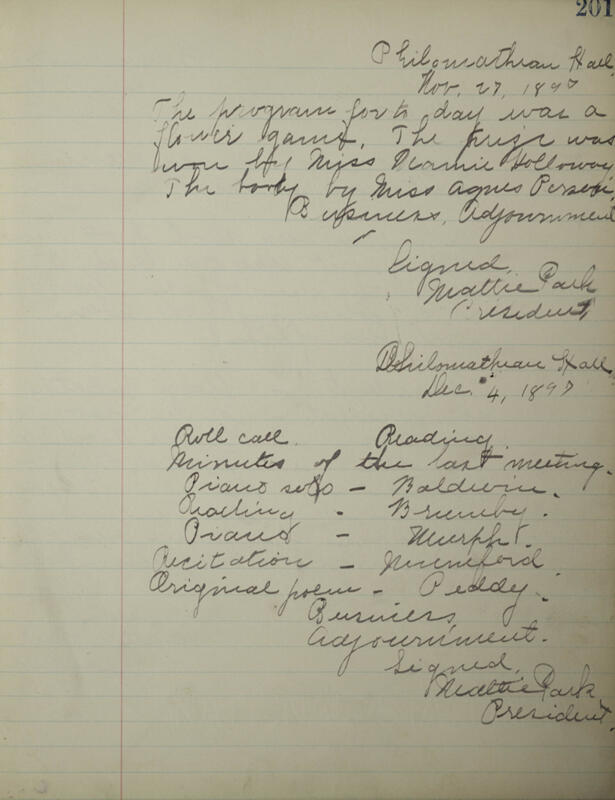 201
Philomathean Hall
Nov. 27, 1897
The program for to day was a
flower game. The prize was
won by Miss Mamie Holloway.
The booby by Miss Agnes Persons.
Business, Adjournment
Signed,
Mattie Park
President,
Philomathean Hall,
Dec. 4, 1897
Roll call. Reading
Minutes of the last meeting.
Piano solo - Baldwin.
Reading - Brumby.
Piano - Murph.
Recitation - Mumford
Original poem - Peddy.
Business
Adjournment.
Signed,
Mattie Park
President.